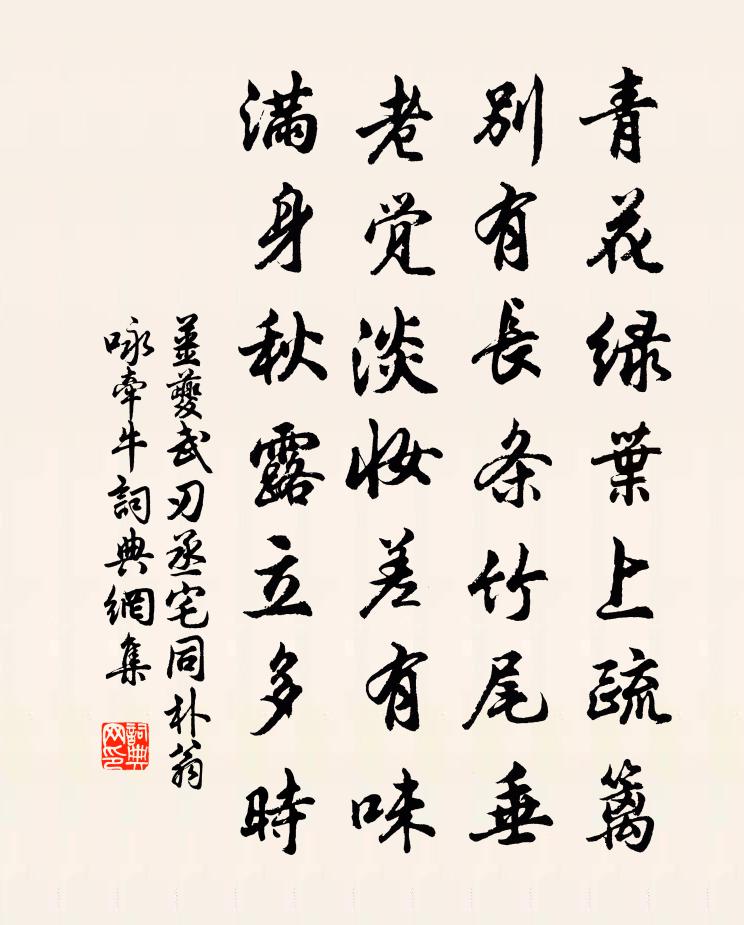 青花绿葉上疏篱
别有長条竹尾垂
老觉淡妆差有味
满身秋露立多時
薑夔武刃丞宅同朴翁
咏牽牛詞典網集
詞典网印